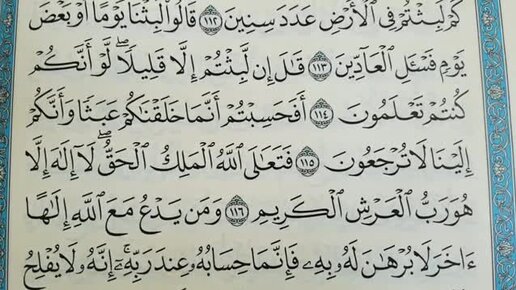 كَمْ لَبِثْتُمْ فِى ٱلْأَرْضِ عَدَدَ سِنِينَ ١١٢ قَالُوا۟ لَبِثْنَا يَوْمًا أَوْ بَعْضَ
يَوْمٍ فَسْـَٔلِ ٱلْعَآدِّينَ ١١٣ قَـٰلَ إِن لَّبِثْتُمْ إِلَّا قَلِيلًا ۖ لَّوْ أَنَّكُمْ
كُنتُمْ تَعْلَمُونَ ١١٤ أَفَحَسِبْتُمْ أَنَّمَا خَلَقْنَـٰكُمْ عَبَثًا وَأَنَّكُمْ
إِلَيْنَا لَا تُرْجَعُونَ ١١٥ فَتَعَـٰلَى ٱللَّهُ ٱلْمَلِكُ ٱلْحَقُّ ۖ لَآ إِلَـٰهَ إِلَّا
هُوَ رَبُّ ٱلْعَرْشِ ٱلْكَرِيمِ ١١٦ وَمَن يَدْعُ مَعَ ٱللَّهِ إِلَـٰهًا
ءَاخَرَ لَا بُرْهَـٰنَ لَهُۥ بِهِۦ فَإِنَّمَا حِسَابُهُۥ عِندَ رَبِّهِۦٓ ۚ إِنَّهُۥ لَا يُفْلِحُ